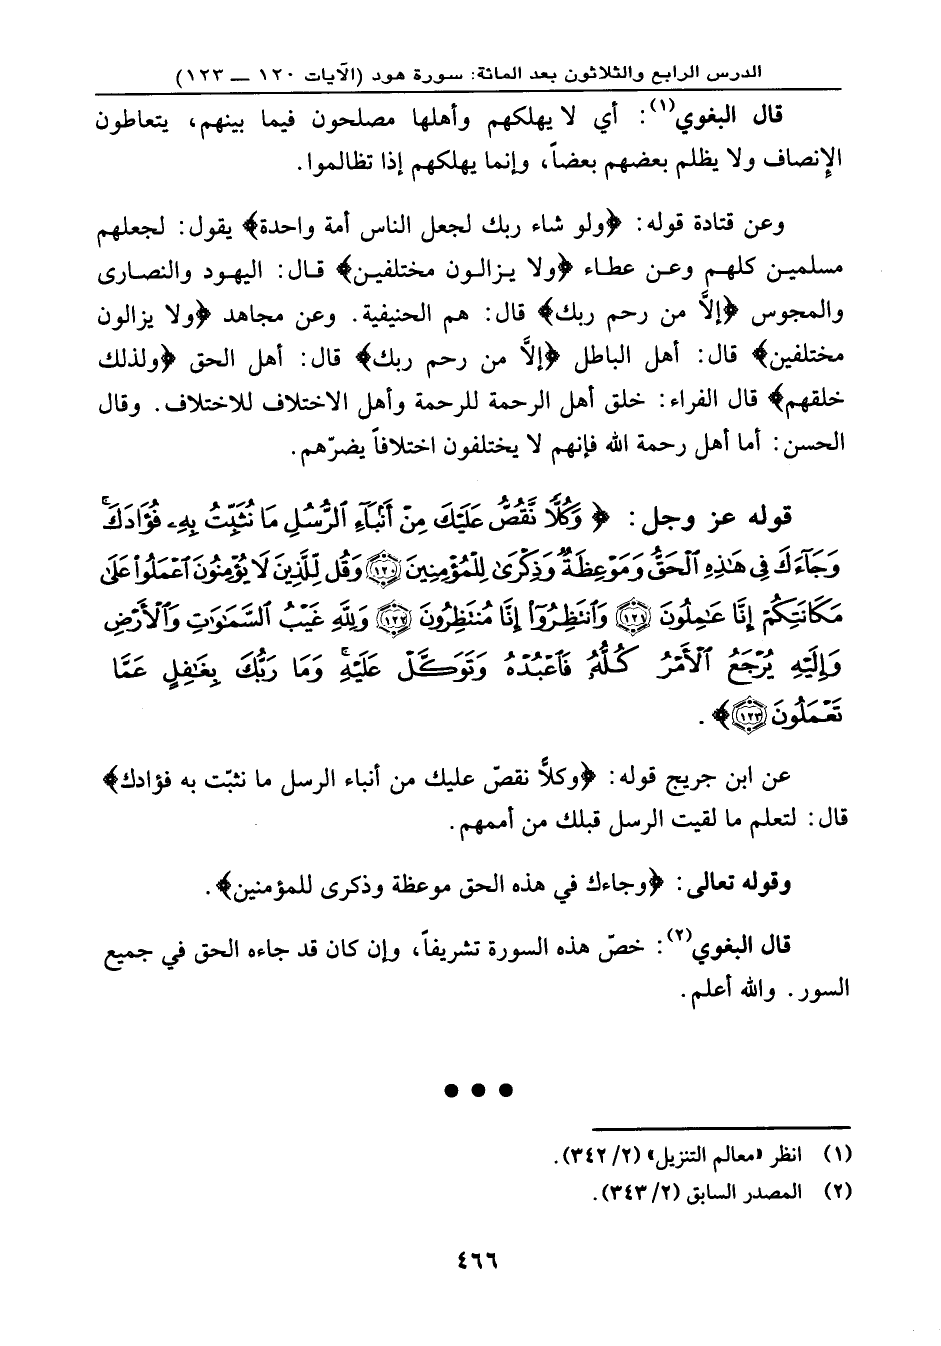 الدرس الرابع والثلاثون بعد المائة: سورة هود (الآيات ١٢٠ ـــ ١٢٣)
قال البغوي(١): أي لا يهلكهم وأهلها مصلحون فيما بينهم، يتعاطون
الإنصاف ولا يظلم بعضهم بعضاً، وإنما يهلكهم إذا تظالموا.
وعن قتادة قوله: ﴿ولو شاء ربك لجعل الناس أمة واحدة﴾ يقول: لجعلهم
مسلمين كلهم وعن عطاء ﴿ولا يزالون مختلفين﴾ قال: اليهود والنصارى
والمجوس ﴿إلاَّ من رحم ربك﴾ قال: هم الحنيفية. وعن مجاهد ﴿ولا يزالون
مختلفين﴾ قال: أهل الباطل ﴿إلاَّ من رحم ربك﴾ قال: أهل الحق ﴿ولذلك
خلقهم﴾ قال الفراء: خلق أهل الرحمة للرحمة وأهل الاختلاف للاختلاف. وقال
الحسن: أما أهل رحمة الله فإنهم لا يختلفون اختلافاً يضرّهم.
قوله عز وجل: ﴿وَكُلًّا نَّقُصُّ عَلَيْكَ مِنْ أَنۢبَآءِ ٱلرُّسُلِ مَا نُثَبِّتُ بِهِۦ فُؤَادَكَ ۚ
وَجَآءَكَ فِى هَٰذِهِ ٱلْحَقُّ وَمَوْعِظَةٌ وَذِكْرَىٰ لِلْمُؤْمِنِينَ ﴿١٢٠﴾ وَقُل لِّلَّذِينَ لَا يُؤْمِنُونَ ٱعْمَلُوا۟ عَلَىٰ
مَكَانَتِكُمْ إِنَّا عَٰمِلُونَ ﴿١٢١﴾ وَٱنتَظِرُوٓا۟ إِنَّا مُنتَظِرُونَ ﴿١٢٢﴾ وَلِلَّهِ غَيْبُ ٱلسَّمَٰوَٰتِ وَٱلْأَرْضِ
وَإِلَيْهِ يُرْجَعُ ٱلْأَمْرُ كُلُّهُۥ فَٱعْبُدْهُ وَتَوَكَّلْ عَلَيْهِ ۚ وَمَا رَبُّكَ بِغَٰفِلٍ عَمَّا
تَعْمَلُونَ ﴿١٢٣﴾﴾.
عن ابن جريج قوله: ﴿وكلاًّ نقصّ عليك من أنباء الرسل ما نثبّت به فؤادك﴾
قال: لتعلم ما لقيت الرسل قبلك من أممهم.
وقوله تعالى: ﴿وجاءك في هذه الحق موعظة وذكرى للمؤمنين﴾.
قال البغوي(٢): خصّ هذه السورة تشريفاً، وإن كان قد جاءه الحق في جميع
السور. والله أعلم.
● ● ●
(١) انظر «معالم التنزيل» (٢/ ٣٤٢).
(٢) المصدر السابق (٢/ ٣٤٣).
٤٦٦